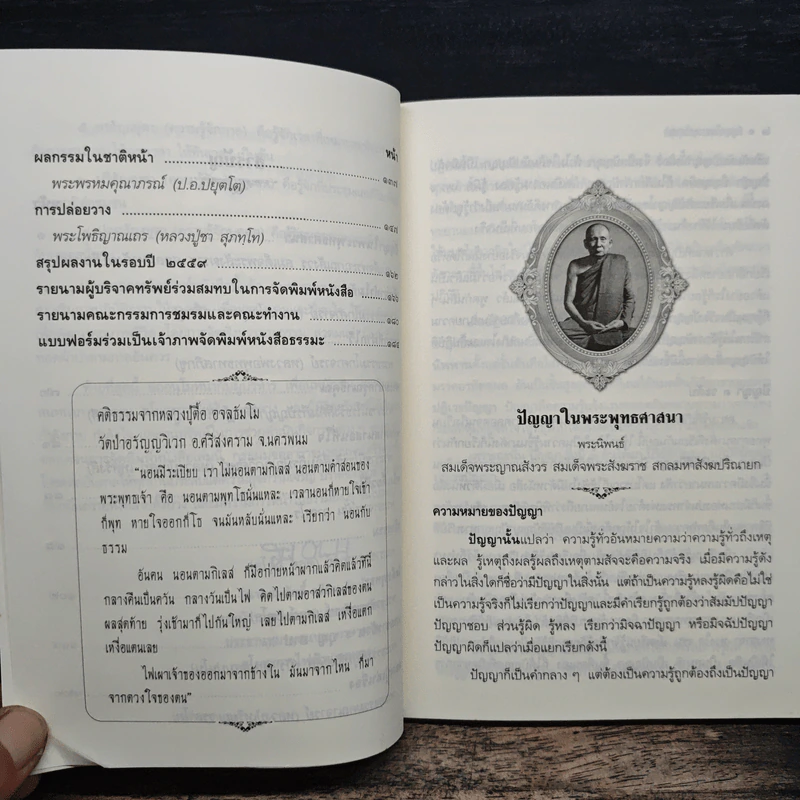 หน้า
ผลกรรมในชาติหน้า ........................................ ๑๓๗
พระพรหมคุณาภรณ์ (ป.อ.ปยุตโต)
การปล่อยวาง ........................................ ๑๔๗
พระโพธิญาณเถร (หลวงปู่ชา สุภทฺโท)
สรุปผลงานในรอบปี ๒๕๕๙ ........................................ ๑๖๒
รายนามผู้บริจาคทรัพย์ร่วมสมทบในการจัดพิมพ์หนังสือ ........ ๑๖๖
รายนามคณะกรรมการชมรมและคณะทำงาน ........................ ๑๘๐
แบบฟอร์มร่วมเป็นเจ้าภาพจัดพิมพ์หนังสือธรรมะ ................ ๑๘๔
คติธรรมจากหลวงปู่ตื้อ อจลธัมโม
วัดป่าอรัญญวิเวก อ.ศรีสงคราม จ.นครพนม
"นอนมีระเบียบ เราไม่นอนตามกิเลส นอนตามคำสอนของ
พระพุทธเจ้า คือ นอนตามพุทโธนั่นแหละ เวลานอนก็หายใจเข้า
ก็พุท หายใจออกก็โธ จนมันหลับนั่นแหละ เรียกว่า นอนกับ
ธรรม
อันคน นอนตามกิเลส ก็มือก่ายหน้าผากแล้วคิดแล้วทีนี้
กลางคืนเป็นควัน กลางวันเป็นไฟ คิดไปตามอาสวกิเลสของตน
ผลสุดท้าย รุ่งเช้ามาก็ไปกันใหญ่ เลยไปตามกิเลส เหงื่อแตก
เหงื่อแตนเลย
ไฟเผาเจ้าของออกมาจากข้างใน มันมาจากไหน ก็มา
จากดวงใจของตน"
ปัญญาในพระพุทธศาสนา
พระนิพนธ์
สมเด็จพระญาณสังวร สมเด็จพระสังฆราช สกลมหาสังฆปริณายก
ความหมายของปัญญา
ปัญญานั้นแปลว่า ความรู้ทั่วอันหมายความว่าความรู้ทั่วถึงเหตุ
และผล รู้เหตุถึงผลรู้ผลถึงเหตุตามสัจจะคือความจริง เมื่อมีความรู้ดัง
กล่าวในสิ่งใดก็ชื่อว่ามีปัญญาในสิ่งนั้น แต่ถ้าเป็นความรู้หลงรู้ผิดคือไม่ใช่
เป็นความรู้จริงก็ไม่เรียกว่าปัญญาและมีคำเรียกรู้ถูกต้องว่าสัมมัปปัญญา
ปัญญาชอบ ส่วนรู้ผิด รู้หลง เรียกว่ามิจฉาปัญญา หรือมิจฉัปปัญญา
ปัญญาผิดก็แปลว่าเมื่อแยกเรียกดังนี้
ปัญญาก็เป็นคำกลาง ๆ แต่ต้องเป็นความรู้ถูกต้องถึงเป็นปัญญา